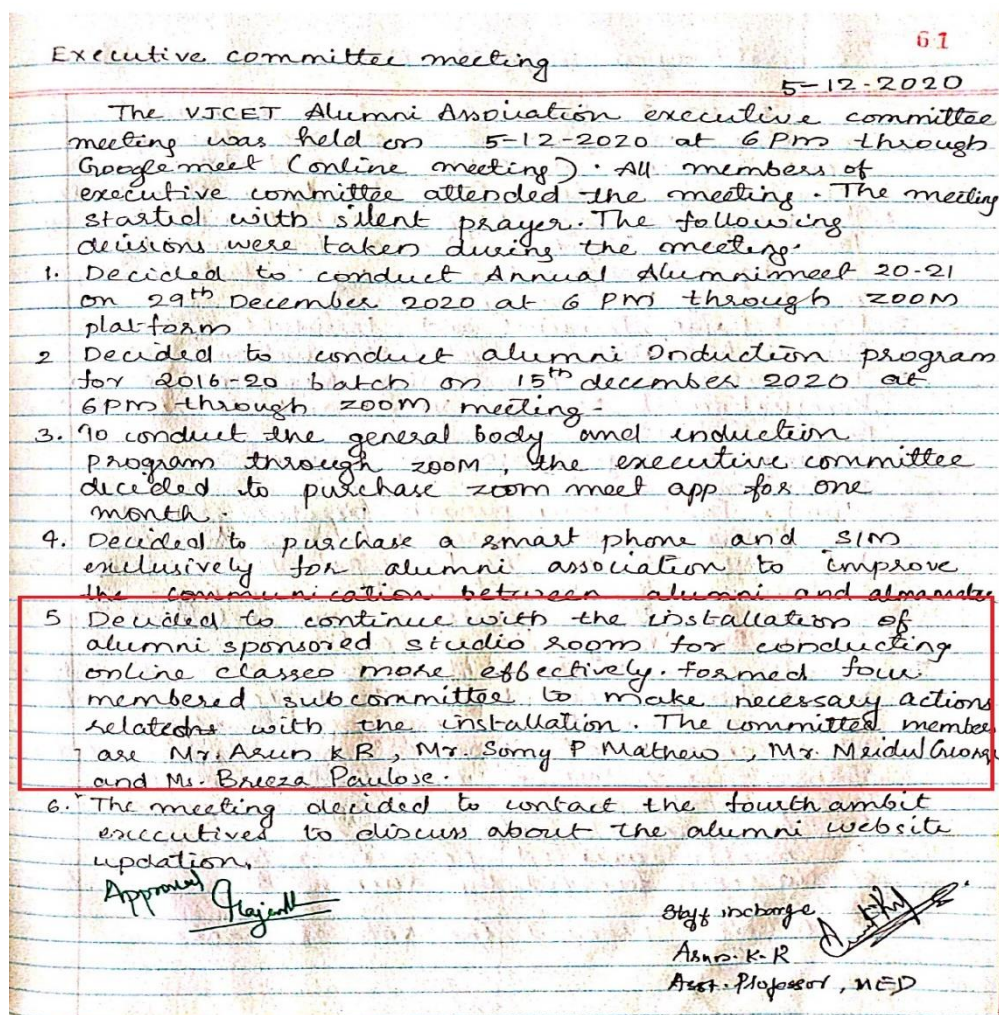 61
Executive committee meeting
5-12-2020
The VJCET Alumni Association executive committee
meeting was held on 5-12-2020 at 6 Pm through
Google meet (online meeting). All members of
executive committee attended the meeting. The meeting
started with silent prayer. The following
decisions were taken during the meeting.
1. Decided to conduct Annual Alumnimeet 20-21
on 29th December 2020 at 6 PM through ZOOM
platform
2 Decided to conduct alumni Induction program
for 2016-20 batch on 15th december 2020 at
6pm through zoom meeting-
3. To conduct the general body and induction
program through zoom, the executive committee
decided to purchase zoom meet app for one
month.
4. Decided to purchase a smart phone and SIM
exclusively for alumni association to improve
the communication between alumni and almamater
5 Decided to continue with the installation of
alumni sponsored studio room for conducting
online classes more effectively. formed four
membered subcommittee to make necessary actions
with the installation. The committee member
are Mr. Arun K R, Mr. Somy P Mathew, Mr. Mridul George
and Ms. Breeza Paulose.
6. The meeting decided to contact the fourth ambit
executives to discuss about the alumni website
updation.
Approved
Staff incharge
Arun. K-R
Asst. Professor, MED